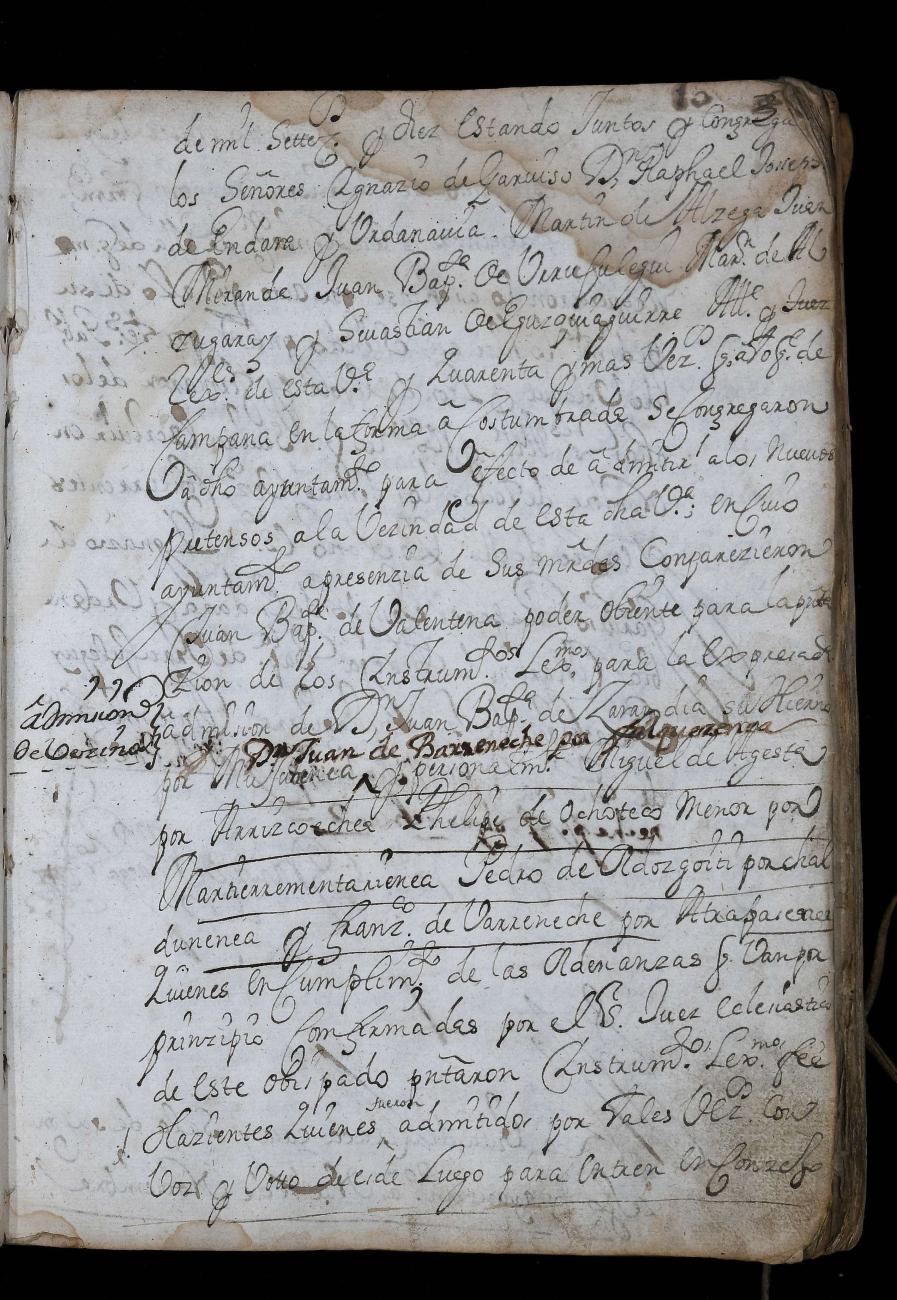 10
de mil Settez.os y diez estando Juntos y Congrega
los Señores Ygnazio de Garviso Dn Raphael Joseph
de Endara y Urdanavia. Martin de Alzega Juan
Mirande Juan Bap.ta de Mar.n de Al
zugaray y Sevastian de Eguzquiaguirre All.e y Juez
de esta V.a y Quarenta y mas Vez.os de
Campana en la forma âCostumbrada Se Congregaron
a dho ayuntam.to para efecto de âdmitir alos Nuevos
pretensos a la Vezindad de esta dha V.a; en Cuio
ayuntam.to apresenzia de Sus mrdes Conparezieron
Juan Bap.ta de Valentena poder obiente para la
zion de los Ynstrum.tos Lex.mos para la expresada
admision de Dn Juan Bap.ta de Zarandia su Hierno
âdmision
de Vezinos
Dn Juan de Barreneche por
por personalm.te Miguel de Agesta
por Arrizcoechea Phelipe de Ochoteco Menor por
Martierrementarienea Pedro de Adozgoiti por chal
dunenea y Franz.co de Varreneche por
Quienes en Cumplim.to de las Ordenanzas q. Van por
prinzipio Comfirmadas por el S. Juez eclesiastico
de este Obispado pntaron Ynstrum.tos Lex.mos fee
Hazientes Quienes fueron admitidos por Tales Vez.os Con
Voz y Voto desde Luego para entren en Conzejo